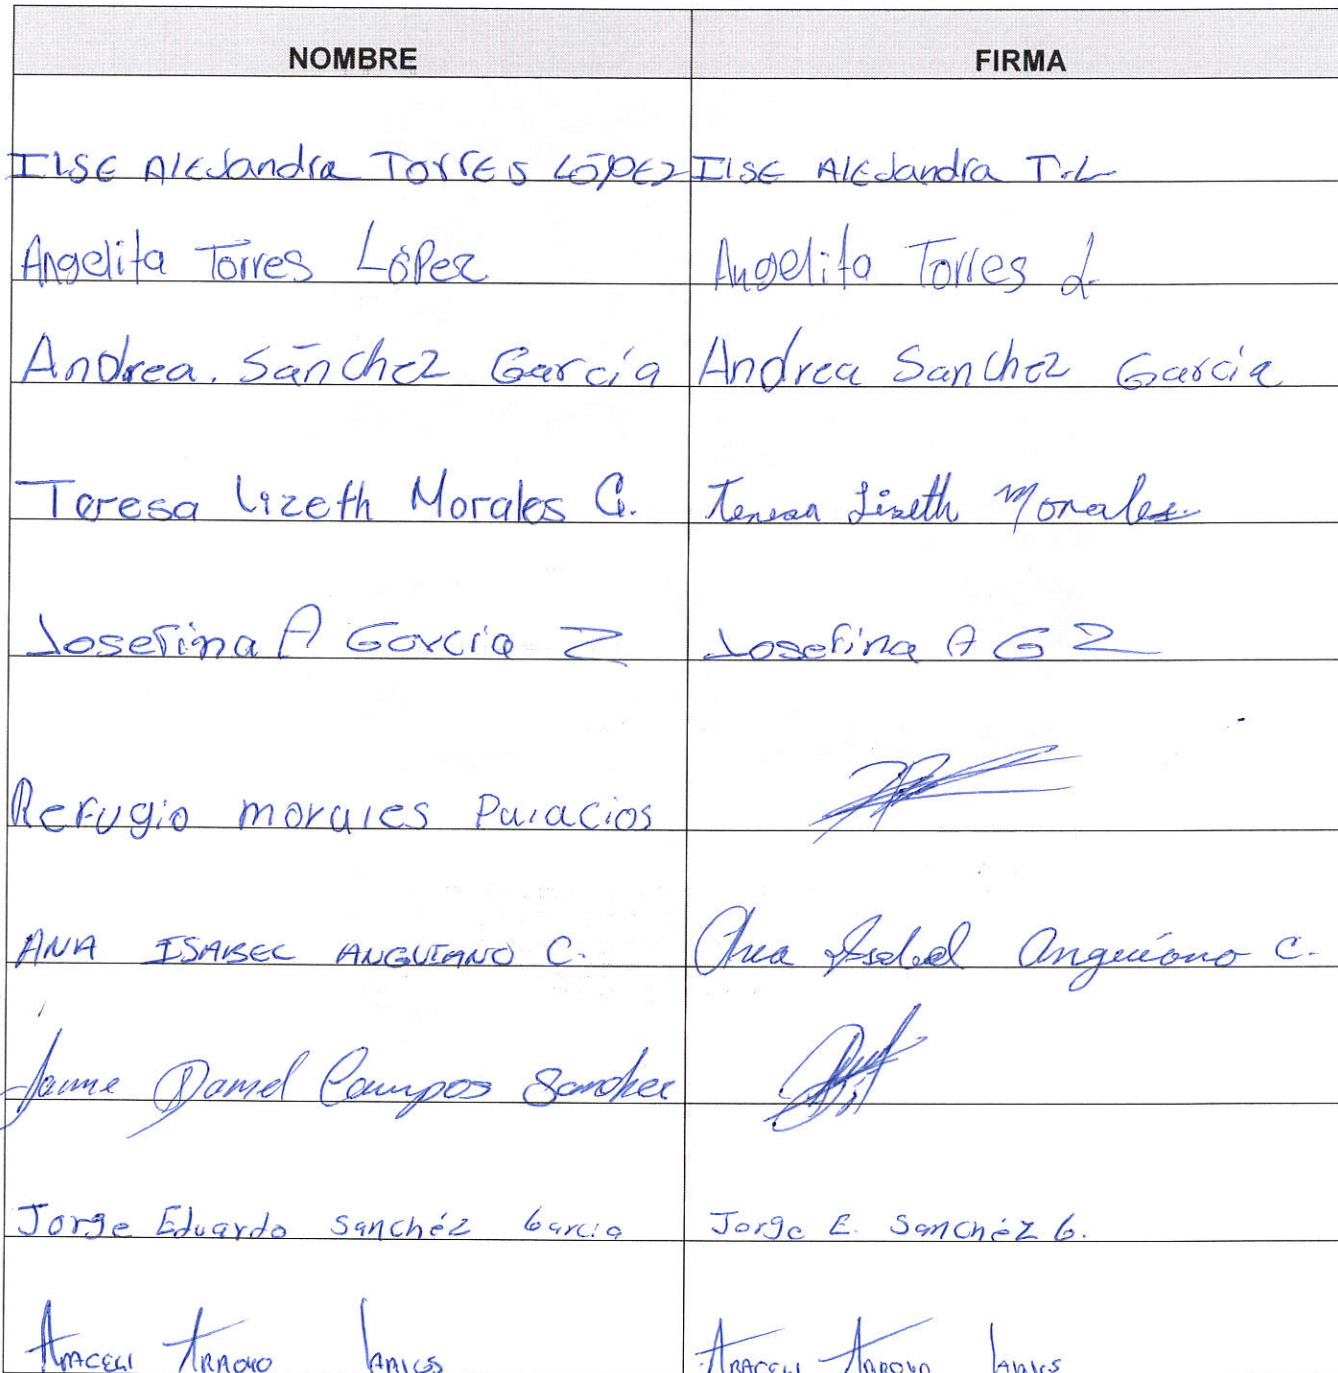 NOMBRE FIRMA
Ilse Alejandra Torres López Ilse Alejandra T.L
Angelita Torres López Angelita Torres L
Andrea. Sánchez García Andrea Sanchez García
Teresa Lizeth Morales G. Teresa Lizeth Morales.
Josefina A García Z Josefina A G Z
Refugio morales Palacios
ANA ISABEL ANGUIANO C. Ana Isabel Anguiano C.
Jaime Daniel Campos Sanchez
Jorge Eduardo Sanchéz Garcia Jorge E. Sanchéz G.
Araceli Arroyo Araceli Arroyo